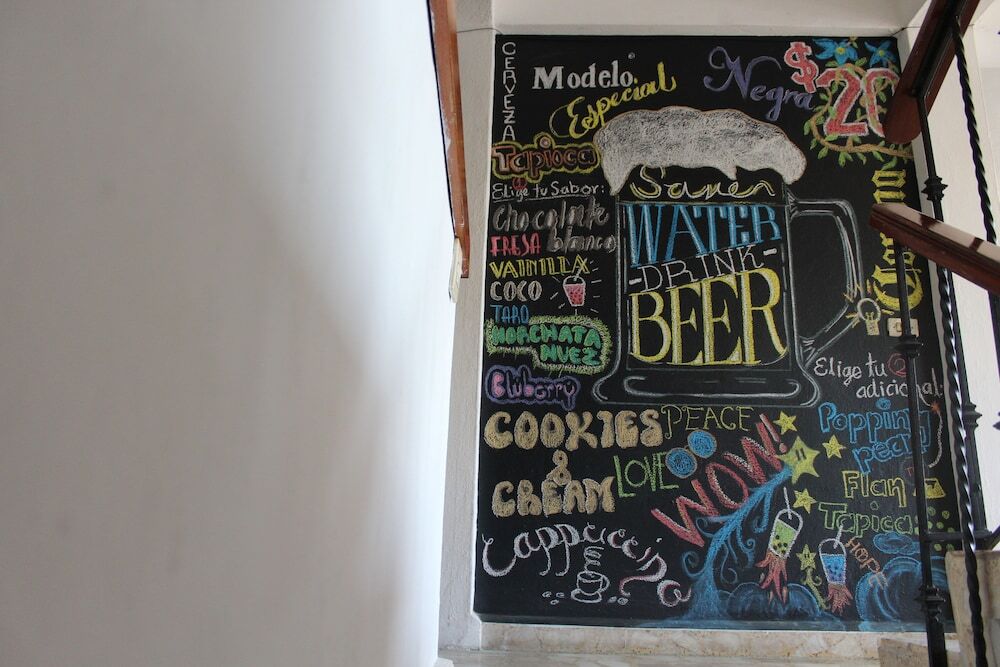 CERVEZA
Modelo
Especial
Negra
$20
Tapioca
Elige tu Sabor:
Chocolate
blanco
FRESA
VAINILLA
COCO
TARO
HORCHATA
NUEZ
Bluberry
COOKIES
&
CREAM
Cappuccino
Save
WATER
-DRINK-
BEER
PEACE
LOVE
WOW!
Elige tu
adicional:
Popping
pearl
Flan
Tapioca
HOPE